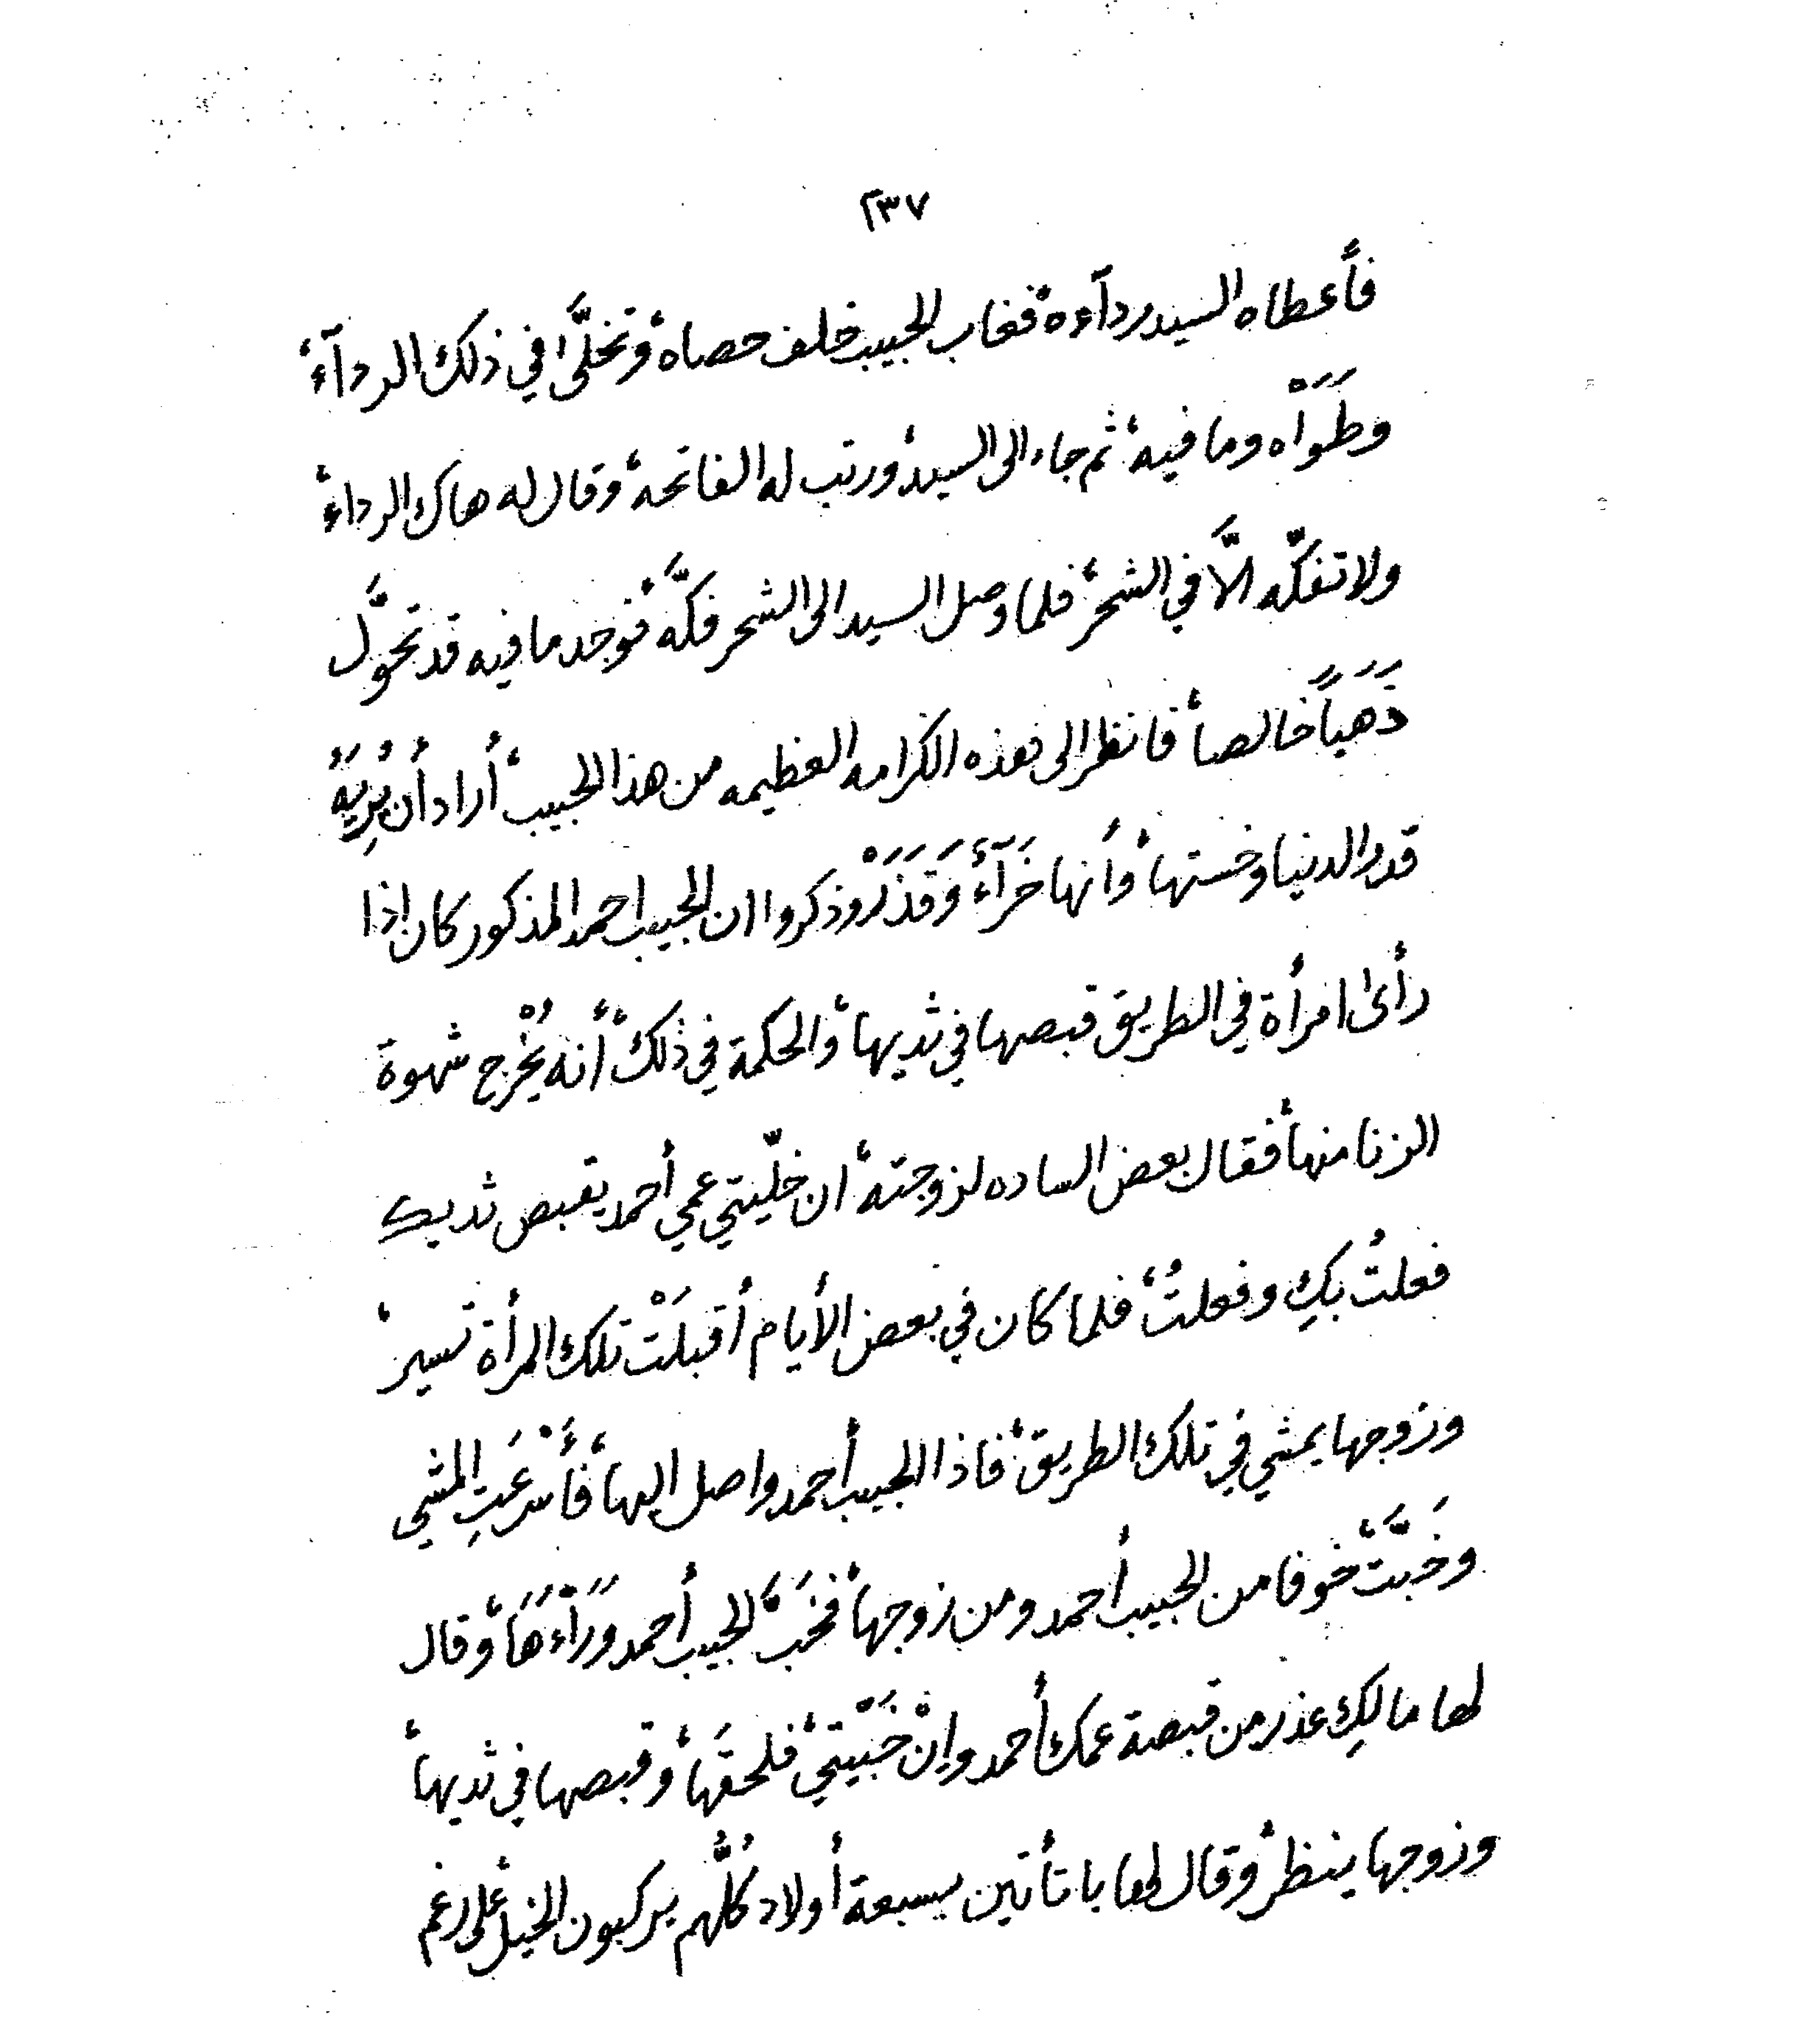 ٢٣٧
فأعطاه السيد ردآءه، فغاب الحبيب خلف حصاه، وتخلَّى في ذلك الردآء،
وطَوَاه وما فيه، ثم جاء الى السيد، ورتب له الفاتحه، وقال له هاك الرداء،
ولا تفكّه الاَّ في الشحر، فلما وصل السيد الى الشحر فكَّه، فوجد ما فيه قد تحوَّل
ذَهَباً خالصاً، فانظر الى هذه الكرامه العظيمه من هذا الحبيب، أراد أن يُرِيَهُ
قدر الدنيا وخستها، وأنها خَرَآءٌ وَقَذَرْ، وذكروا ان الحبيب احمد المذكور كان إذا
رأى امرأة في الطريق قبصها في ثديها، والحكمة في ذلك، أنه يُخْرج شهوة
الزنا منها، فقال بعض الساده لزوجته، ان خلّيتي عمي أحمد يقبص ثديك
فعلتُ بكِ وفعلتُ، فلما كان في بعض الأيام أقبلَتْ تلك المرأة تسير،
وزوجها يمشي في تلك الطريق، فاذا الحبيب أحمد واصل اليها، فأَسْرعَتِ المشي
وخَبَّتْ خوفا من الحبيب أحمد ومن زوجها، فخَبَّ الحبيب أحمد وَرَآءَهَا، وقال
لها مالكِ عذر من قبصة عمك أحمد وإنْ خَبّيتي، فلحقَها، وقبصها في ثديها،
وزوجها ينظر، وقال لها با تأتين بسبعة أولاد كُلُّهم يركبون الخيل، على رغم